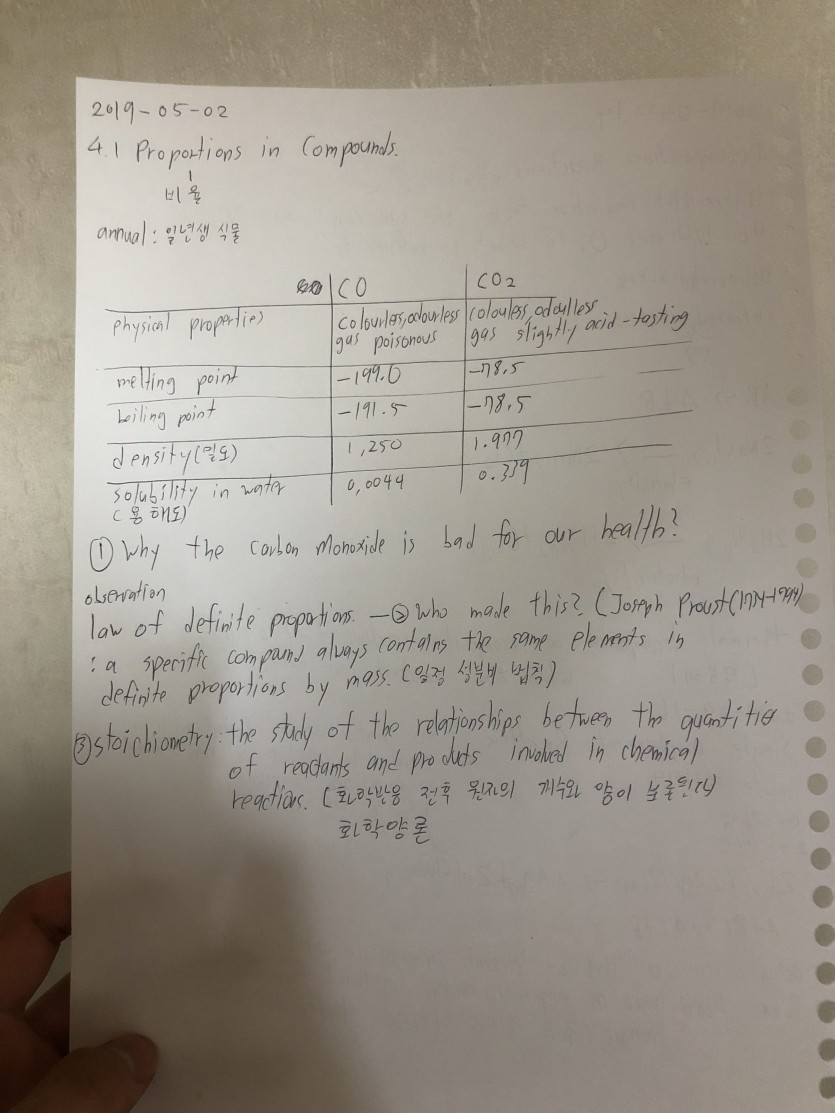 2019-05-02
4.1 Proportions in Compounds.
비율
annual : 일년생 식물
CO CO2
physical properties colourless, odourless gas poisonous colouless, odoulless gas slightly acid-tasting
melting point -199.0 -78.5
boiling point -191.5 -78.5
density (밀도) 1,250 1.977
solubility in water 0,0044 0.339
(용해도)
① Why the carbon monoxide is bad for our health?
observation
law of definite proportions. -② Who made this? (Joseph Proust
: a specific compound always contains the same elements in
definite proportions by mass. (일정 성분비 법칙)
③ stoichiometry : the study of the relationships between the quantities
of reactants and products involved in chemical
reactions. (화학반응 전후 원자의 개수와 양이
화학양론